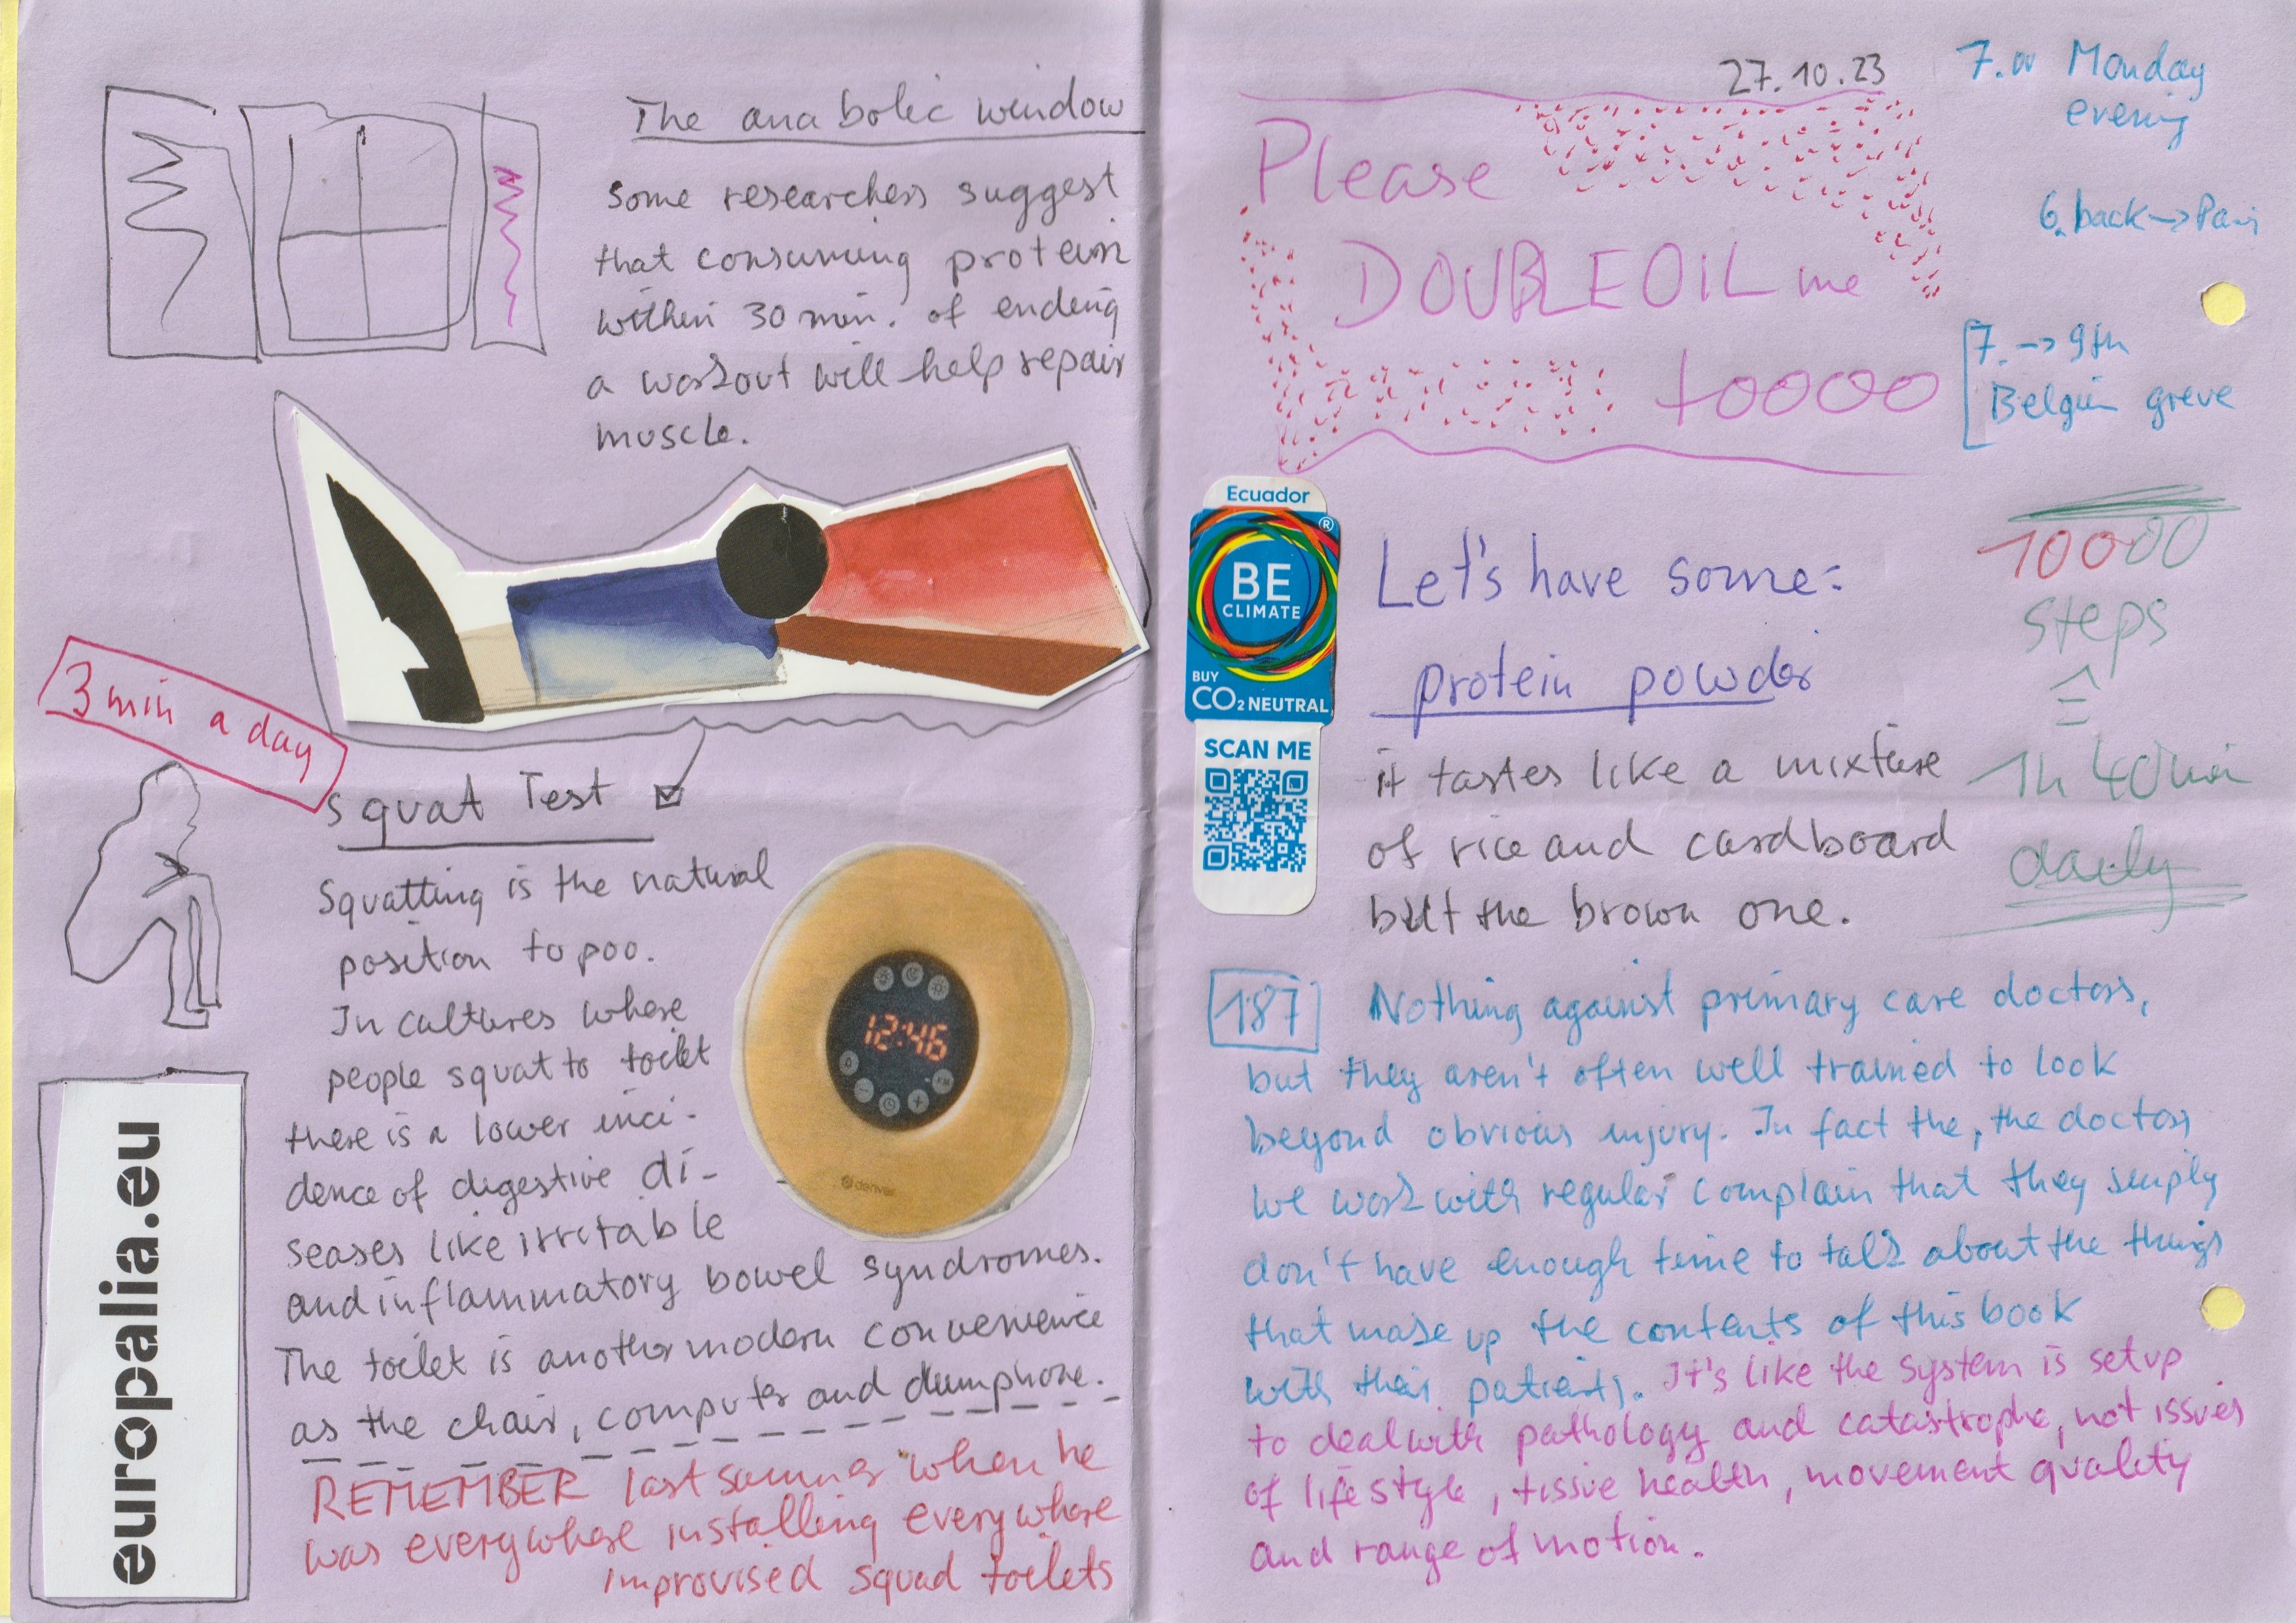 The anabolic window
Some researchers suggest
that consuming protein
within 30 min. of ending
a workout will help repair
muscle.
3 min a day
Squat Test
Squatting is the natural
position to poo.
In cultures where
people squat to toilet
there is a lower inci-
dence of digestive di-
seases like irritable
and inflammatory bowel syndromes.
The toilet is another modern convenience
as the chair, computer and dumphone.
REMEMBER last summer when he
was everywhere installing everywhere
improvised squad toilets
12:46
denver
europalia.eu
27.10.23
7.00 Monday
evening
Please
DOUBLEOIL me
toooo
6. back → Paris
7. → 9th
Belgium greve
Ecuador
BE
CLIMATE
BUY
CO2 NEUTRAL
SCAN ME
Let's have some:
protein powder
it tastes like a mixture
of rice and cardboard
but the brown one.
10000
steps
≙
1h 40min
daily
187 Nothing against primary care doctors,
but they aren't often well trained to look
beyond obvious injury. In fact the, the doctors
we work with regular complain that they simply
don't have enough time to talk about the things
that make up the contents of this book
with their patients. It's like the system is set up
to deal with pathology and catastrophe, not issues
of lifestyle, tissue health, movement quality
and range of motion.